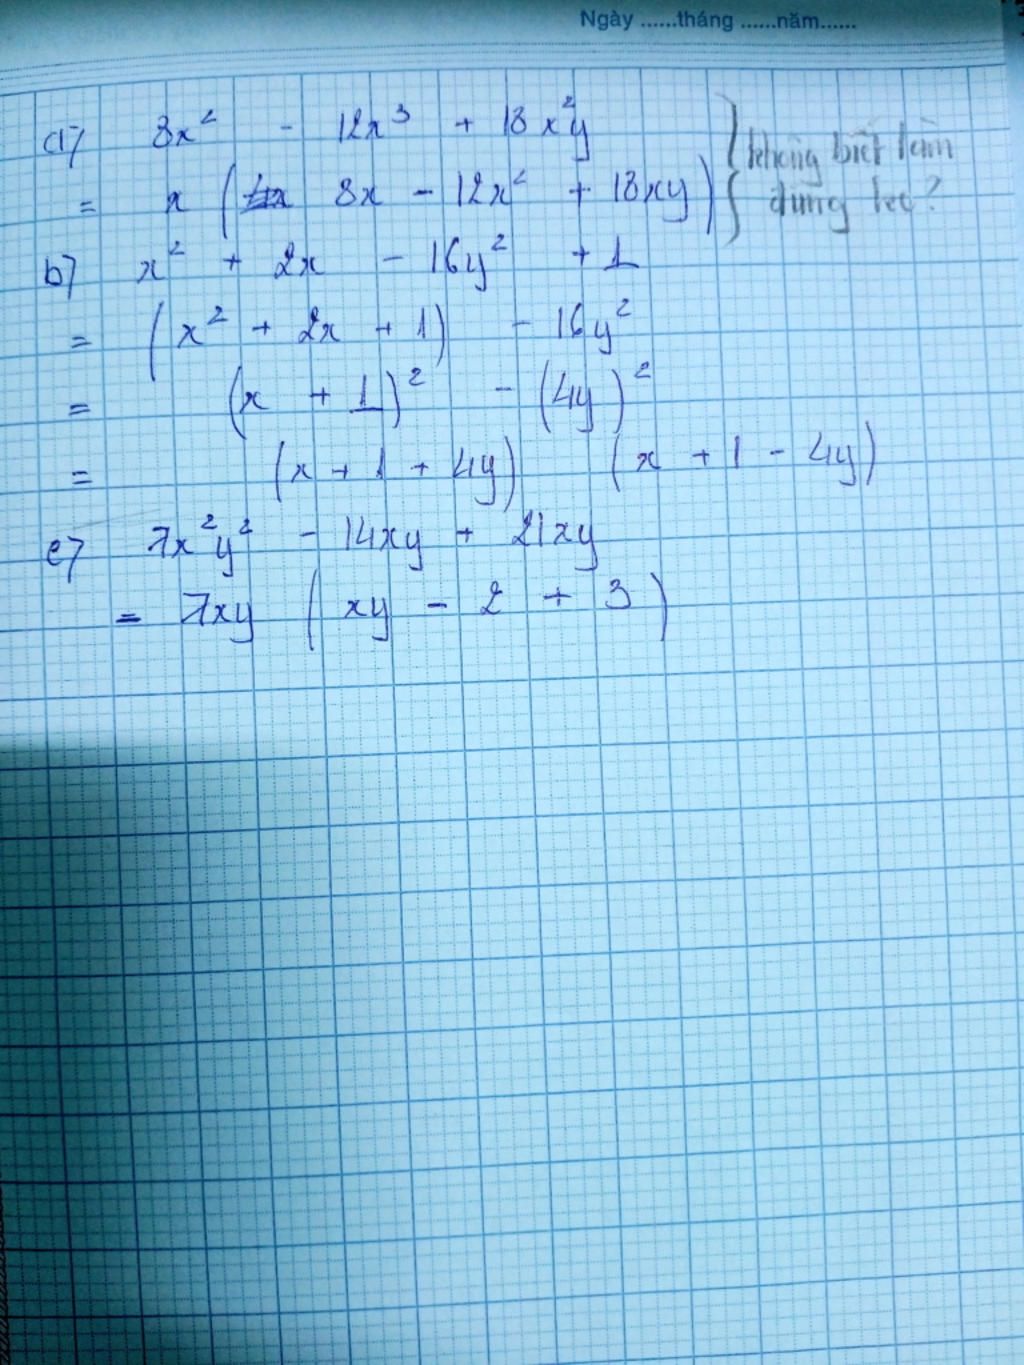 Ngày ......tháng ......năm......
a) 8x² - 12x³ + 18x²y
= x (4x 8x - 12x² + 18xy) } không biết làm
đúng ko?
b) x² + 2x - 16y² + 1
= (x² + 2x + 1) - 16y²
= (x + 1)² - (4y)²
= (x + 1 + 4y) (x + 1 - 4y)
c) 7x²y² - 14xy + 21xy
= 7xy (xy - 2 + 3)